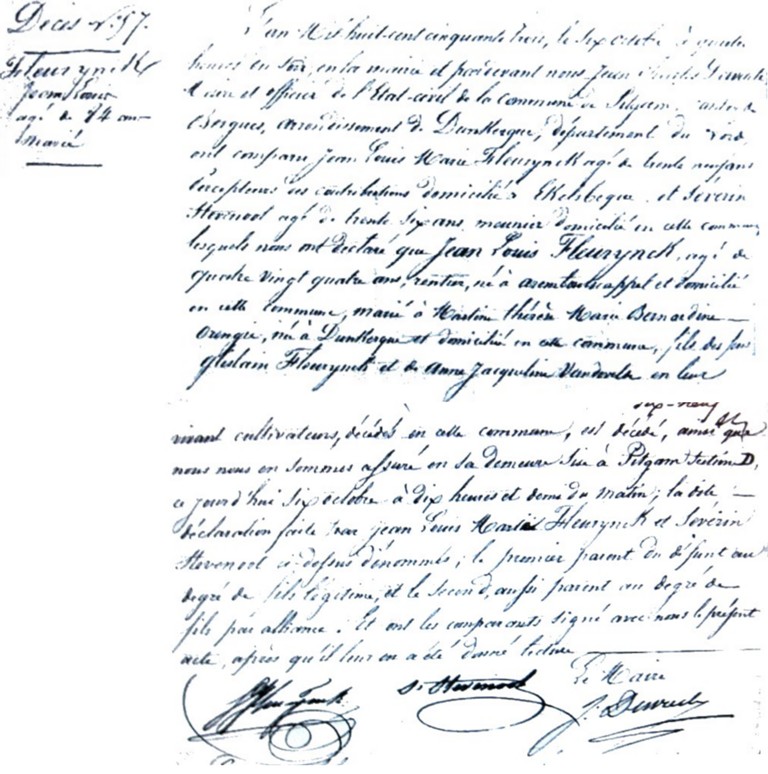 Décès N.° 57.
Fleurynck
Jean Louis
agé de 84 ans
marié
L'an Mil huit cent cinquante trois, le six octobre à quatre
heures du soir, en la mairie et pardevant nous Jean Charles
Maire et officier de l'Etat-civil de la commune de Pitgam, canton de
Bergues, arrondissement de Dunkerque, département du Nord,
ont comparu Jean Louis Marie Fleurynck agé de trente ans
percepteur des contributions domicilié à Ekelsbeque et Séverin
Stevenoot agé de trente six ans meunier domicilié en cette commune,
lesquels nous ont déclaré que Jean Louis Fleurynck, agé de
quatre vingt quatre ans, rentier, né à arembouts-cappel et domicilié
en cette commune, marié à Martine thérèse Marie Bernardine
née à Dunkerque et domiciliée en cette commune, fils des feus
ghislain Fleurynck et de Anne Jacqueline en leur
vivant cultivateurs, décédés en cette commune, est décédé, ainsi que
nous nous en sommes assuré en sa demeure sise à Pitgam section D,
ce jourd'hui six octobre à dix heures et demie du matin; la dite
déclaration faite par Jean Louis Marie Fleurynck et Séverin
Stevenoot ci-dessus dénommés; le premier parent du défunt au
degré de fils légitime, et le second, aussi parent au degré de
fils par alliance. Et ont les comparants signé avec nous le présent
acte, après qu'il leur en a été donné lecture
Le Maire
S. Stevenoot